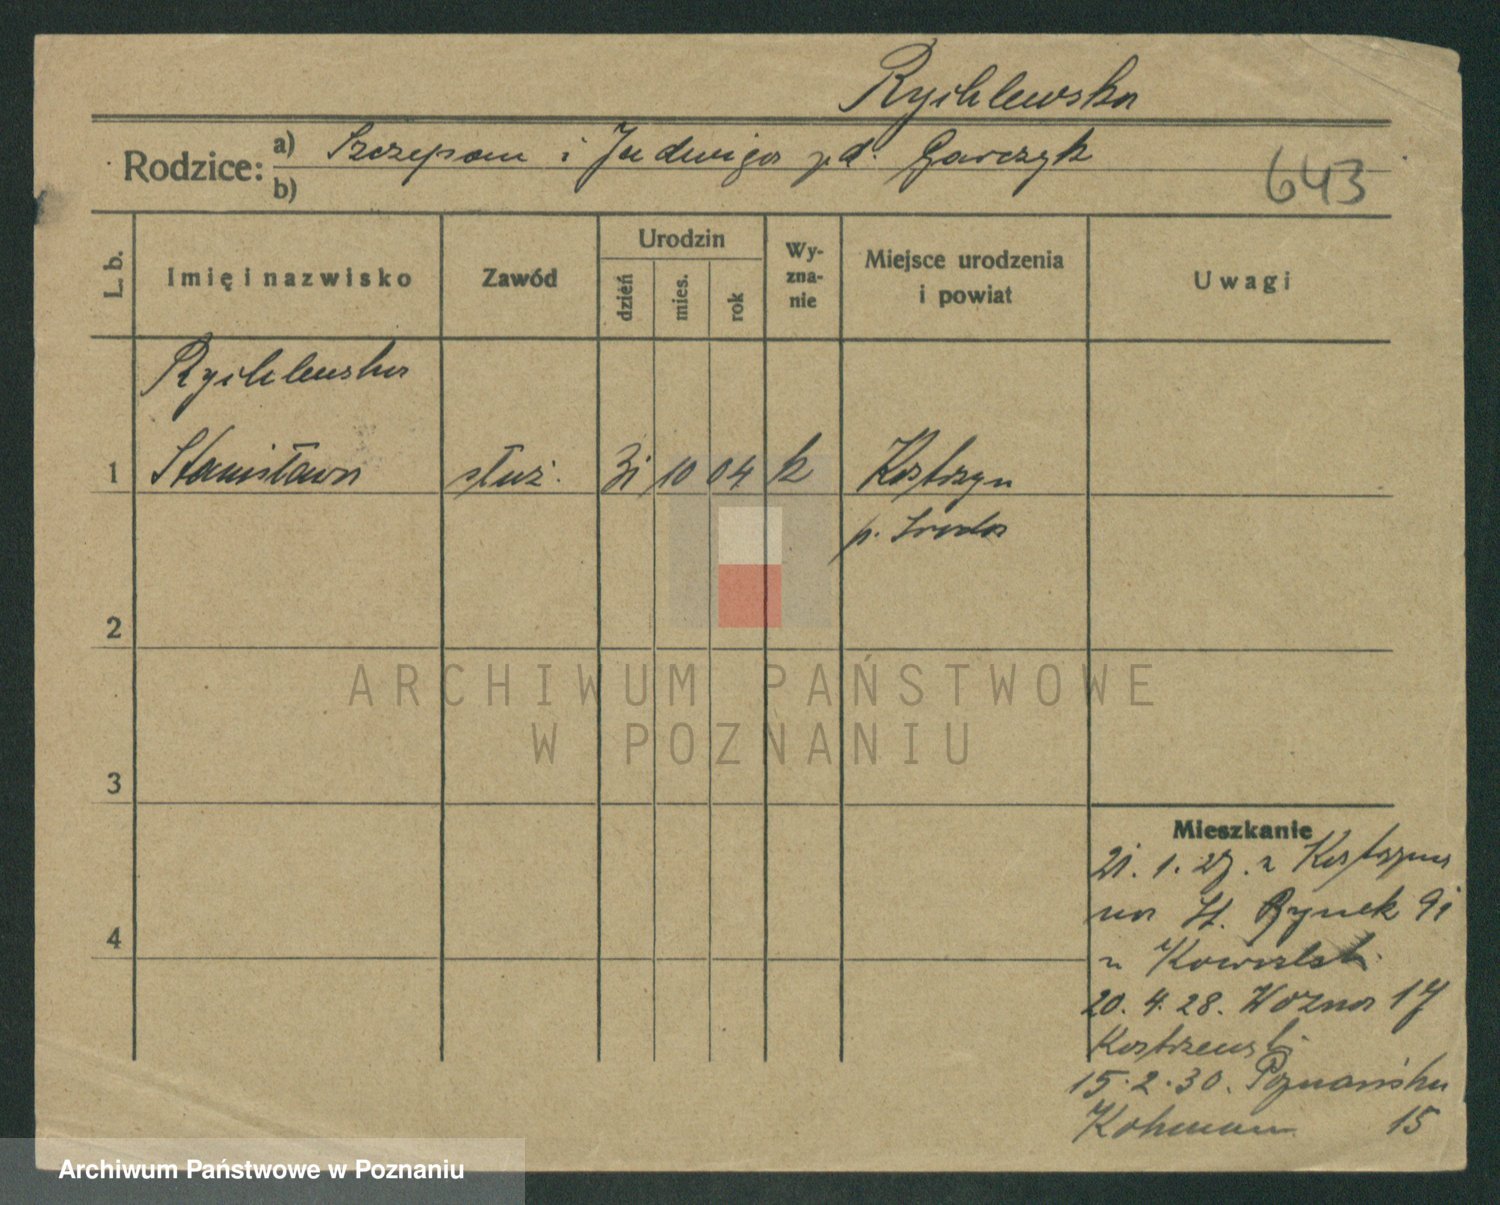 Rychlewska
Rodzice: a) Szczepan i Jadwiga zd. Garczyk
b)
643
L. b.
Imię i nazwisko
Zawód
Urodzin
dzień
mies.
rok
Wy-
zna-
nie
Miejsce urodzenia
i powiat
Uwagi
Rychlewska
1 Stanisława służ. 31 10 04 k Kostrzyn
p. Środa
2
3
4
Mieszkanie
21. 1. 27. z Kostrzyna
na St. Rynek 91
u Kowalski
20. 4. 28. Woźna 17
Kostrzewski
15. 2. 30. Poznańska
Kohman 15
ARCHIWUM PAŃSTWOWE
W POZNANIU
Archiwum Państwowe w Poznaniu